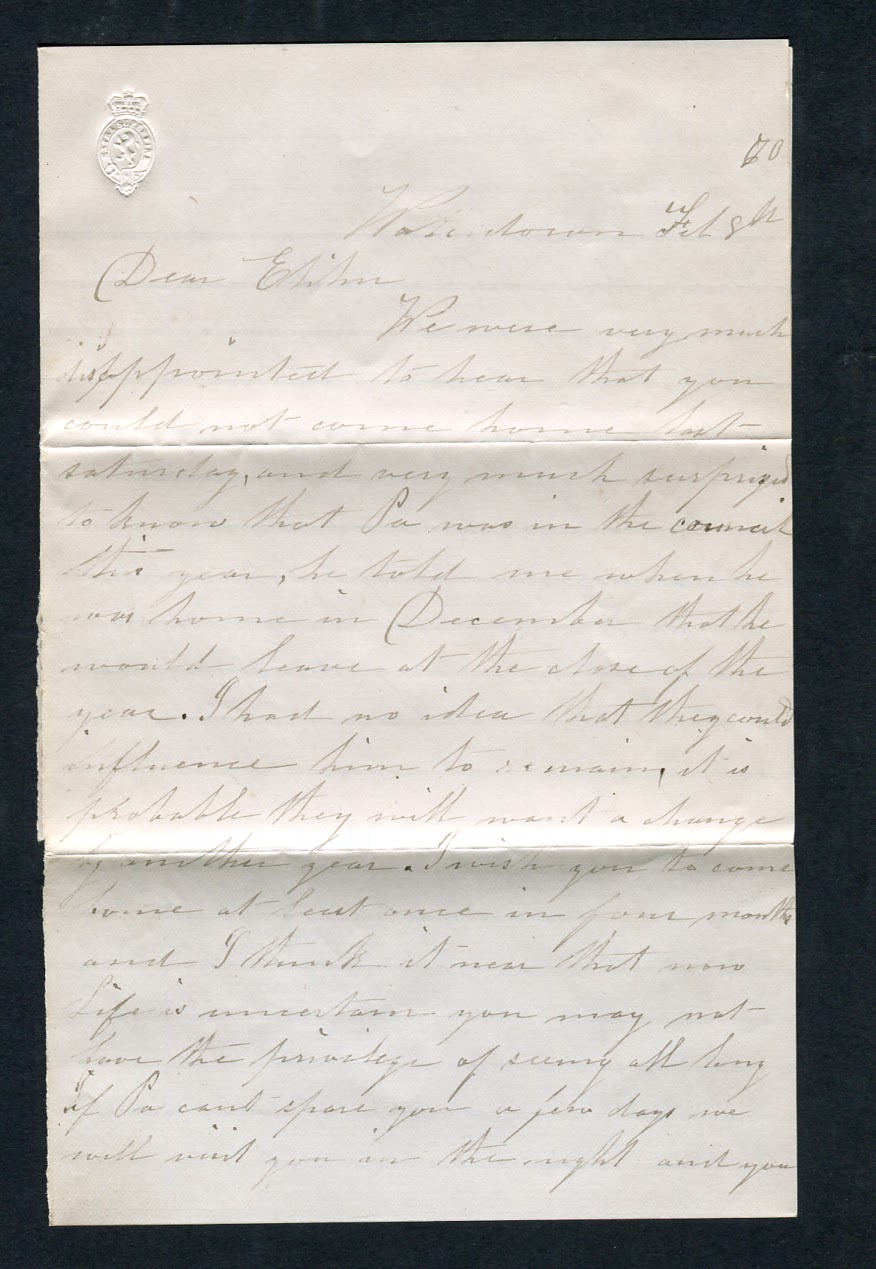 70
Watertown Feb 8th
Dear Elihu
We were very much
disappointed to hear that you
could not come home last
saturday, and very much surprized
to know that Pa was in the council
this year, he told me when he
was home in December that he
would leave at the close of the
year. I had no idea that they could
influence him to remain, it is
probable they will want a change
by another year. I wish you to come
home at least once in four months
and I think it near that now
Life is uncertain you may not
have the privilege of seeing all long
if Pa cant spare you a few days we
will visit you in the night and you